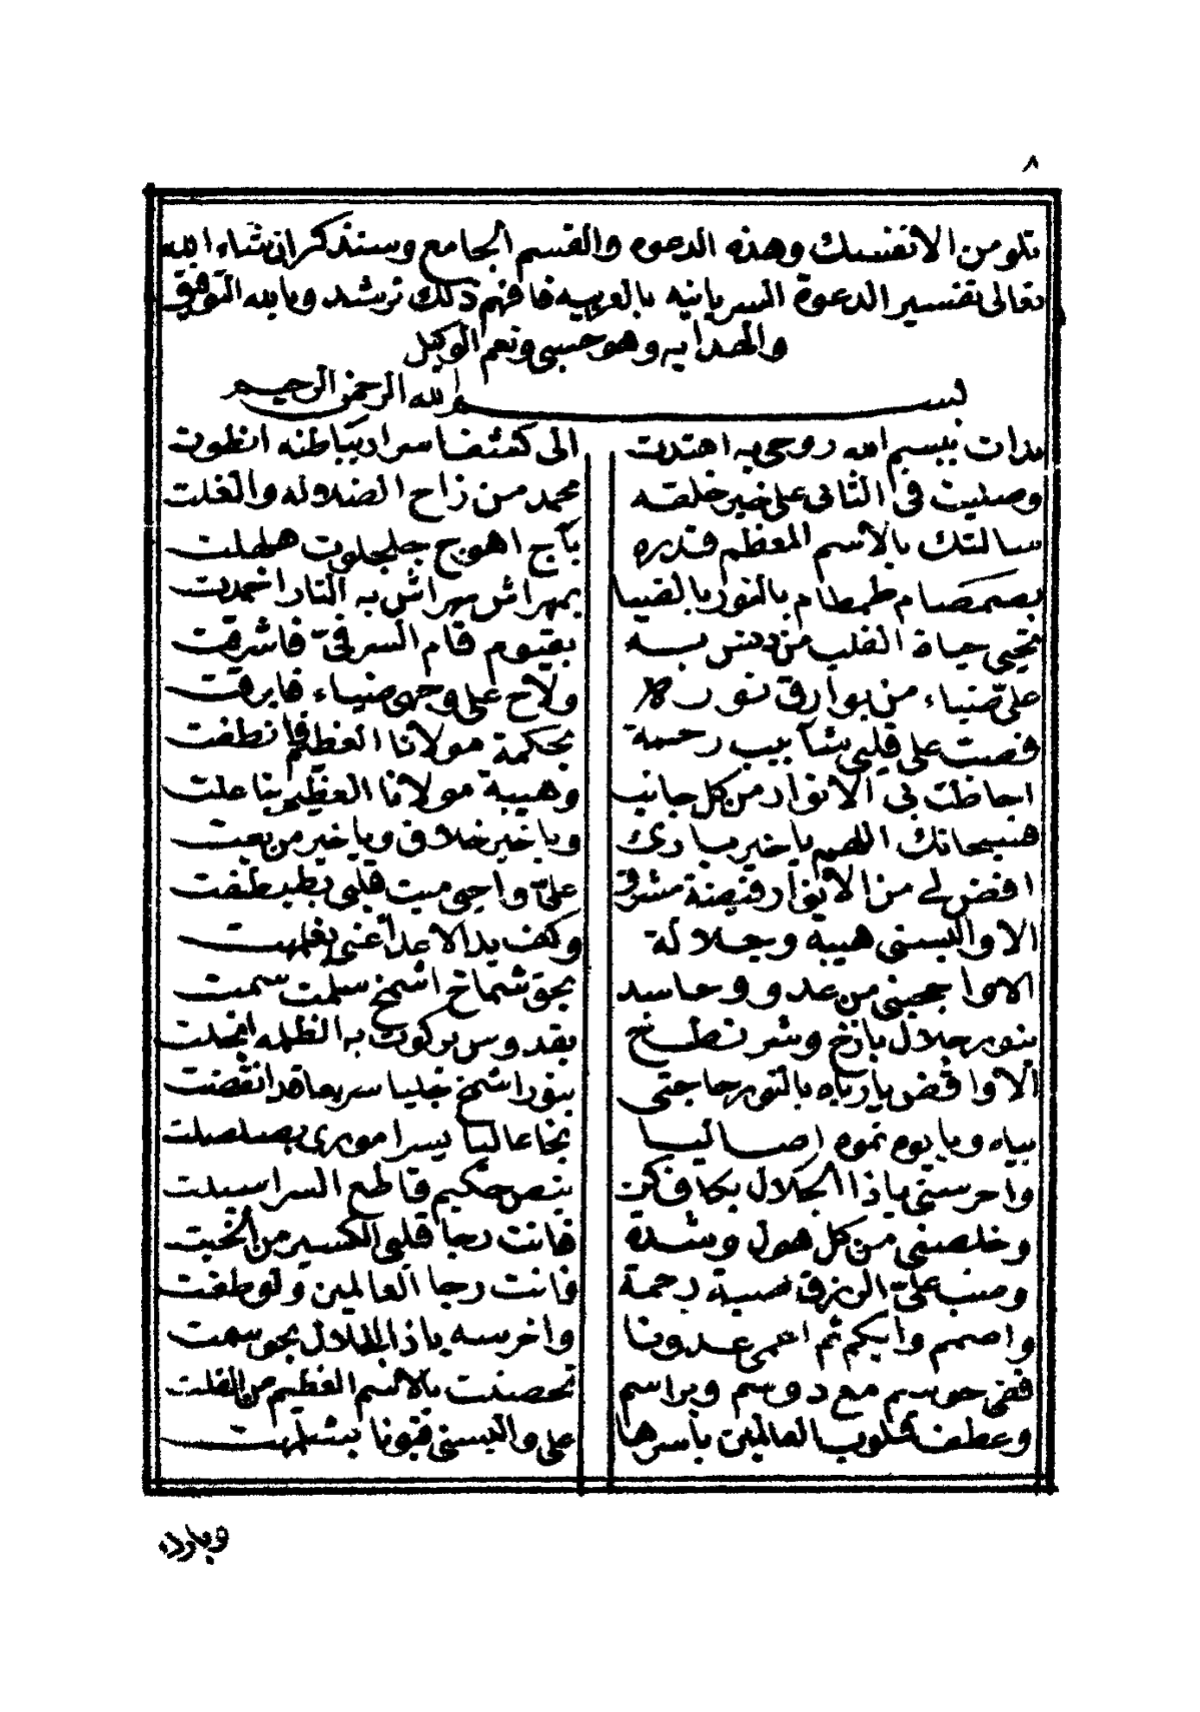 ٨
تلومن الا نفسك وهذه الدعوه والقسم الجامع وسنذكر ان شاء الله
تعالى تفسير الدعوة السريانيه بالعربيه فافهم ذلك ترشد وبالله التوفيق
والهدايه وهو حسبى ونعم الوكيل
بسم الله الرحمن الرحيم
بدات ببسم الله روحى به اهتدت الى كشف اسرار بباطنه انطوت
وصليت فى الثانى على خير خلقه محمد من زاح الضلوله والغلت
سالتك بالاسم المعظم قدره بآج اهوج جلجلوت هلهلت
بصمصام طمطام بالنور بالضيا بمهراش مهراش به النار اخمدت
تحيى حياة القلب من دنس به بقيوم قام السر فىّ فاشرقت
علىّ ضياء من بوارق نوره ولاح على وجهى ضياء فابرقت
فصت على قلبى شآبيب رحمة بحكمة مولانا العظيم فانطفت
احاطت بى الانوار من كل جانب وهيبة مولانا العظيم بنا علت
فسبحانك اللهم ياخير بارى ويا خير خلاق ويا خير من بعت
افض لى من الانوار فيضة مشرق علىّ واحى ميت قلبى بطيطفت
الا والبسنى هيبة وجلالة وكف يد الاعدا عنى بغلمهت
الا وا حجبنى من عدو وحاسد بحق شماخ اشمخ سلمت سمت
بنور جلال بازخ وشر نطخ بقدوس بركوت به الظلمه انجلت
الا وا قض ياربّاه بالنور حاجتى بنور اشمخ جليا سريعا قد انقضت
بياه ويا يوه نموه اصاليا نجا عاليا يسر امورى بصلصلت
وا حرسنى ياذا الجلال بكاف كن بنص حكيم قاطع السر اسبلت
وخلصنى من كل هول وشدة فانت رجا قلبى الكسير من الخبت
وصب علىّ الرزق صبة رحمة فانت رجا العالمين ولوطغت
واصمم وابكم ثم اعمى عدونا واخرسه ياذا الجلال بحوسمت
ففى حوسم مع دوسم وبراسم تحصنت بالاسم العظيم من الغلت
وعطف قلوب العالمين باسرها على والبسنى قبولا بشلمهت
وبارك